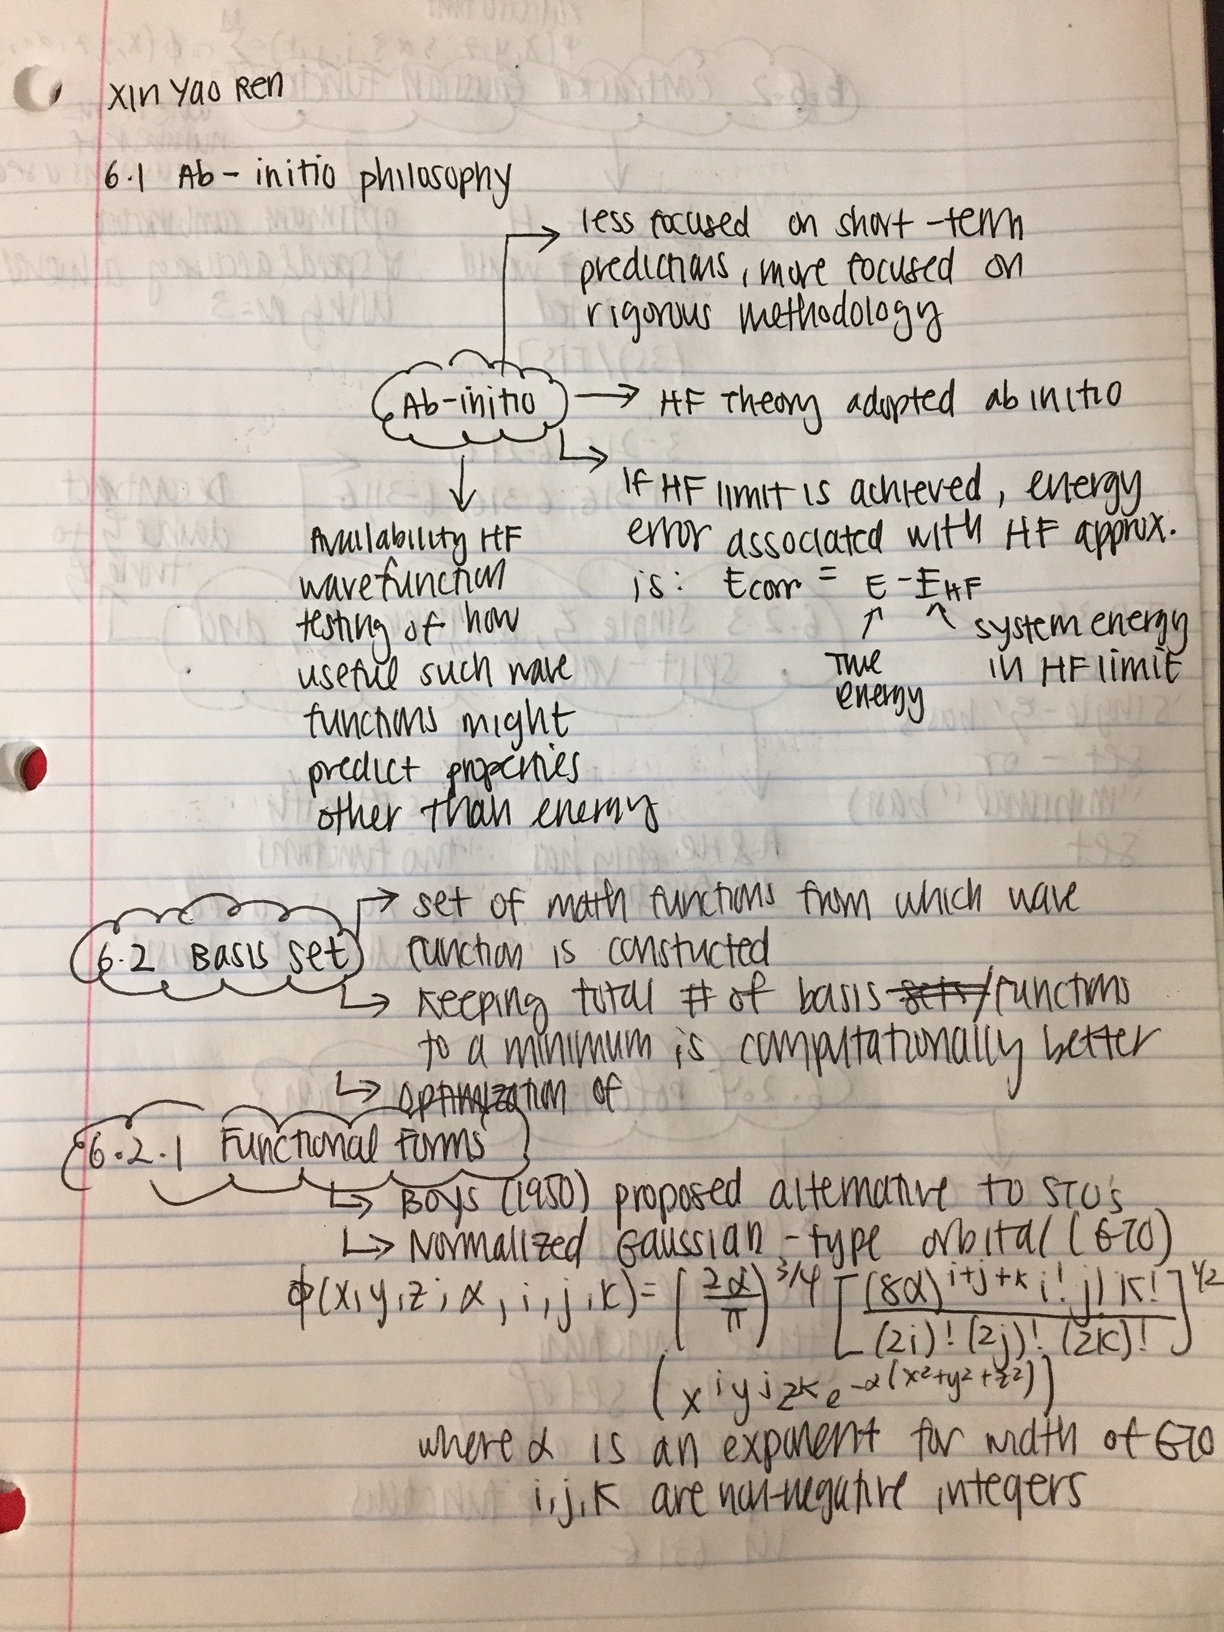 Xin Yao Ren
6.1 Ab-initio philosophy
less focused on short-term
predictions, more focused on
rigorous methodology
Ab-initio
→ HF Theory adopted ab initio
If HF limit is achieved, energy
error associated with HF approx.
is: Ecorr = E - EHF
True
energy
system energy
in HF limit
Availability HF
wavefunction
testing of how
useful such wave
functions might
predict properties
other than energy
6.2 Basis set
→ set of math functions from which wave
function is constucted
↳ Keeping total # of basis sets/functions
to a minimum is computationally better
↳ optimization of
6.2.1 Functional forms
↳ Boys (1950) proposed alternative to STO's
↳ Normalized Gaussian-type orbital (GTO)
ϕ(x,y,z; α, i, j, k) = [2α/π]^3/4 [(8α)^i+j+k i! j! k! / (2i)! (2j)! (2k)!]^1/2
(x^i y^j z^k e^-α(x²+y²+z²))
where α is an exponent for width of GTO
i,j,k are non-negative integers